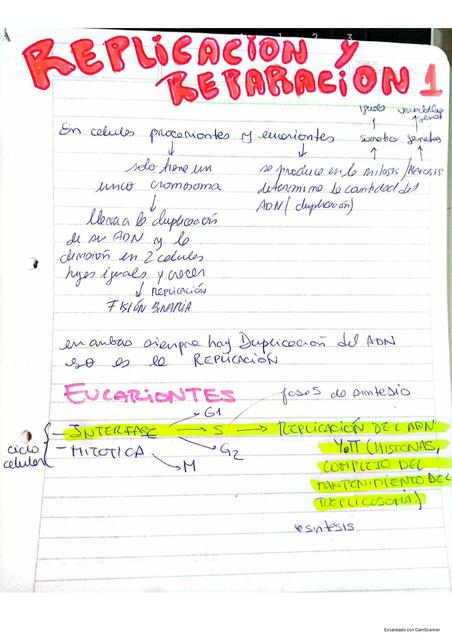 REPLICACION Y
REPARACION 1
iguales variabilidad genet
En celulas procariontes y eucariontes somatica gametos
solo tiene un
unico cromosoma
se produce en la mitosis/Meiosis
determina la cantidad del
ADN (duplicación)
lleva a la duplicación
de su ADN y la
división en 2 celulas
hijas iguales y crecer
REPLICACIÓN
FISIÓN BINARIA
en ambas siempre hay Duplicación del ADN
eso es la REPLICACIÓN
EUCARIONTES
fase S de sintesis
G1
ciclo celular
INTERFASE → S → REPLICACIÓN DEL ADN
G2
MITOTICA
M
(HISTONAS,
COMPLEJO DEL
MANTENIMIENTO DEL
REPLICOSOMA)
sintesis
Escaneado con CamScanner